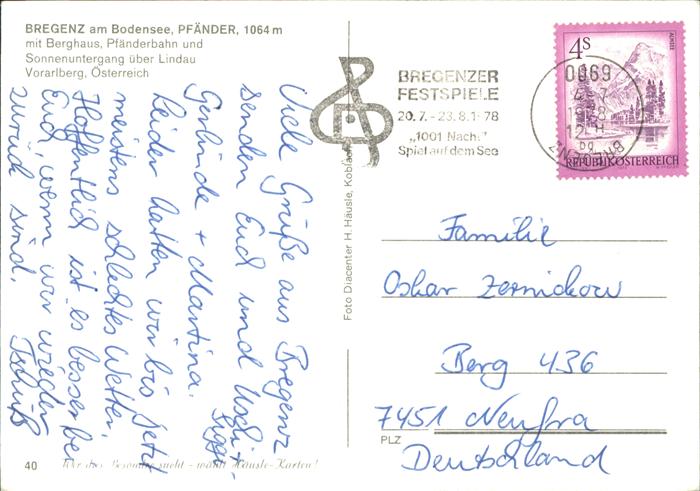 BREGENZ am Bodensee, PFÄNDER, 1064 m
mit Berghaus, Pfänderbahn und
Sonnenuntergang über Lindau
Vorarlberg, Österreich
Viele Grüße aus Bregenz
senden Euch und Uschi +
Gerlinde + Martina. Siggi
Leider hatten wir bis jetzt
meistens schlechtes Wetter.
Hoffentlich ist es besser bei
Euch, wenn wir wieder
zurück sind. Tschüß
Foto Diacenter H. Häusle, Koblach
BREGENZER
FESTSPIELE
20.7. - 23.8.1978
„1001 Nacht"
Spiel auf dem See
4 S
ALMSEE
REPUBLIK ÖSTERREICH
6900
BREGENZ
Familie
Oskar Zernickow
Berg 436
7451 Neufra
PLZ
Deutschland
40 Wer das Besondere sucht - wählt Häusle-Karten!